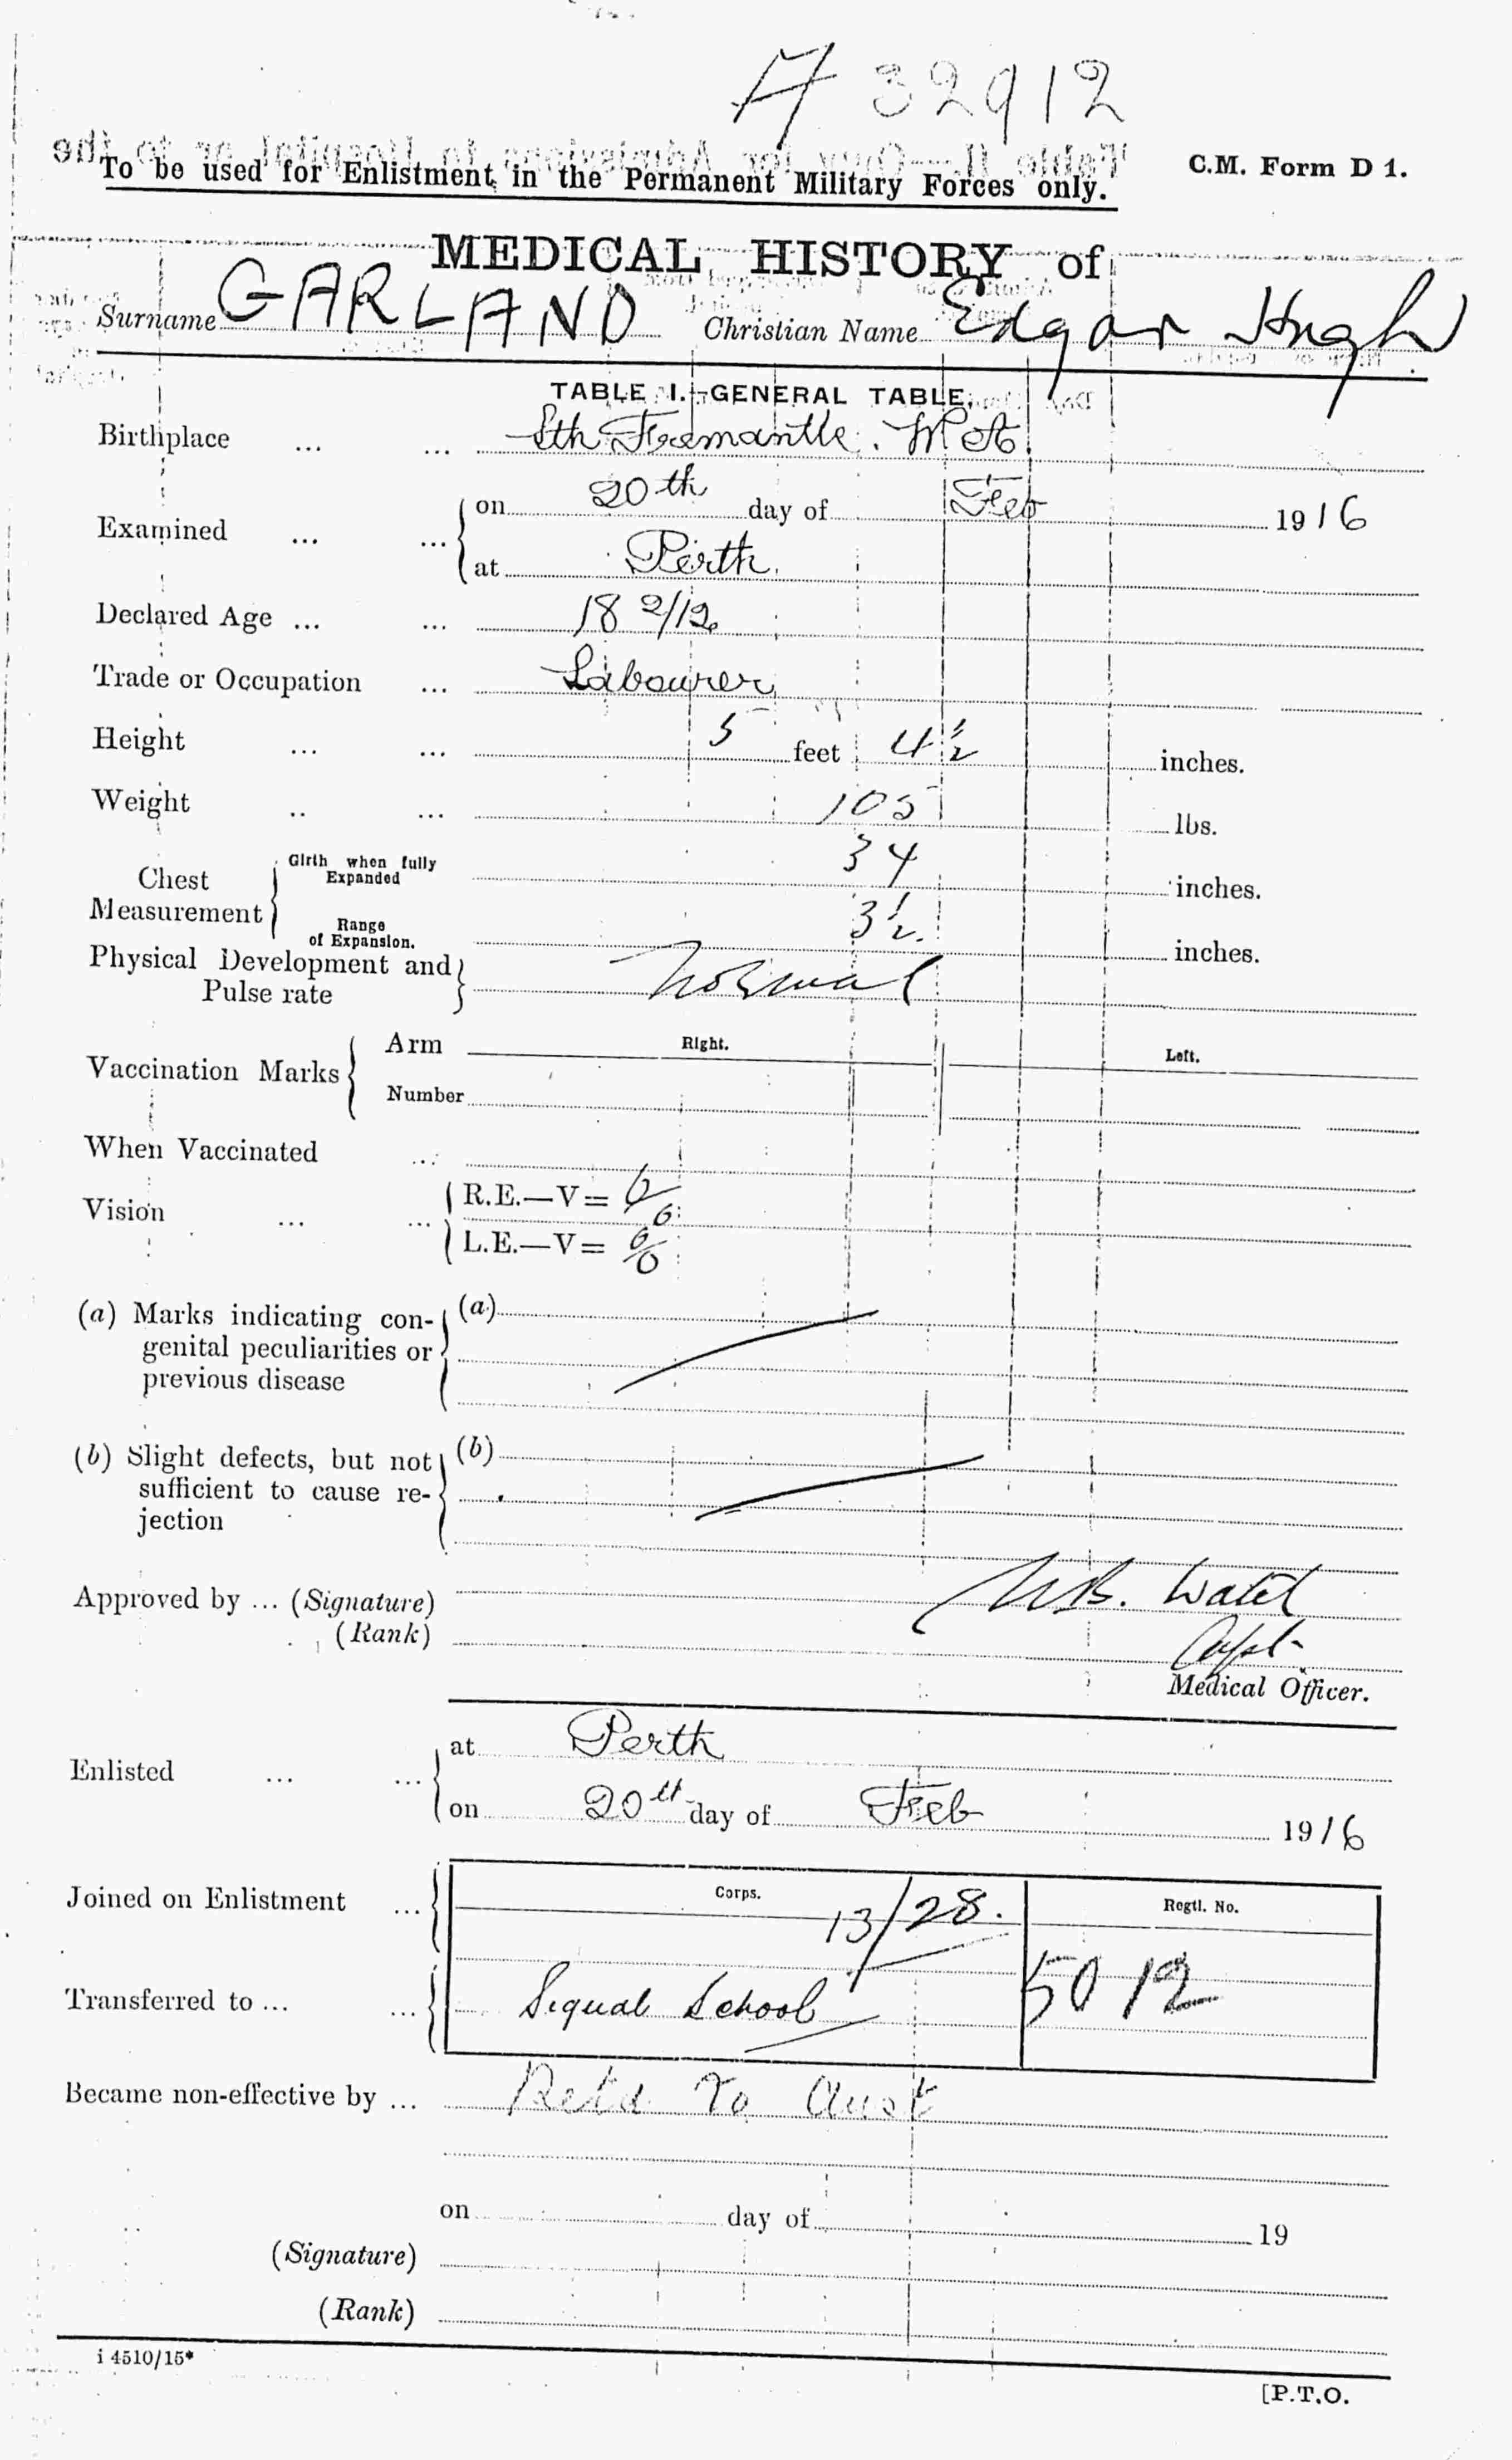 A 32912
To be used for Enlistment in the Permanent Military Forces only.
C.M. Form D 1.
MEDICAL HISTORY of
Surname GARLAND Christian Name Edgar Hugh
TABLE I.—GENERAL TABLE.
Birthplace ... ... Sth Fremantle. W A
Examined ... ... on 20th day of Feb 1916
at Perth.
Declared Age ... ... 18 2/12
Trade or Occupation ... Labourer
Height ... ... 5 feet 4½ inches.
Weight .. ... 105 lbs.
Chest Measurement Girth when fully Expanded 34 inches.
Range of Expansion. 3½ inches.
Physical Development and Pulse rate Normal
Vaccination Marks Arm Right. Left.
Number
When Vaccinated ...
Vision ... ... R.E.—V= 6/6
L.E.—V= 6/6
(a) Marks indicating con- (a)
genital peculiarities or
previous disease
(b) Slight defects, but not (b)
sufficient to cause re-
jection
Approved by ... (Signature)
(Rank) Capt.
Medical Officer.
Enlisted ... ... at Perth
on 20th day of Feb 1916
Corps. Regtl. No.
Joined on Enlistment ... 13/28.
5012
Transferred to ... ... Signal School
Became non-effective by ... Retd To Aust
on day of 19
(Signature)
(Rank)
i 4510/15*
[P.T.O.